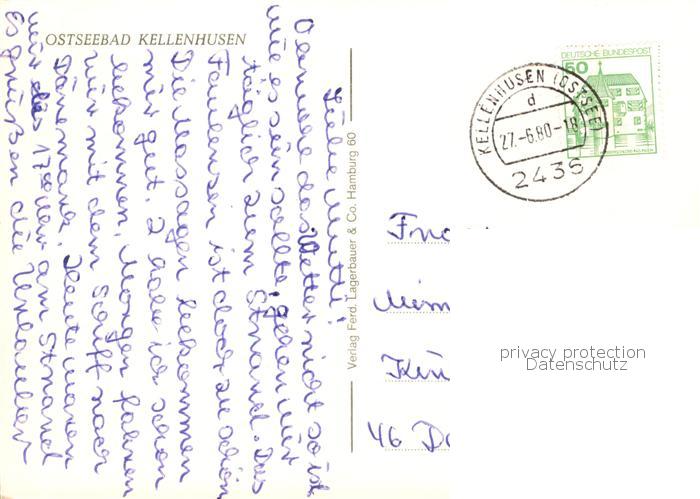 OSTSEEBAD KELLENHUSEN
Liebe Mutti!
Obwohl das Wetter nicht so ist
wie es sein sollte, gehen wir
täglich zum Strand. Das
Faulenzen ist doch zu schön
Die Massagen bekommen
mir gut. 2 habe ich schon
bekommen. Morgen fahren
wir mit dem Schiff nach
Dänemark. Heute waren
wir bis 17 Uhr am Strand
Es grüßen die Urlauber
Verlag Ferd. Lagerbauer & Co. Hamburg 60
DEUTSCHE BUNDESPOST
60
KELLENHUSEN (OSTSEE)
d
27.-6.80-18
2435
46 Do
privacy protection
Datenschutz